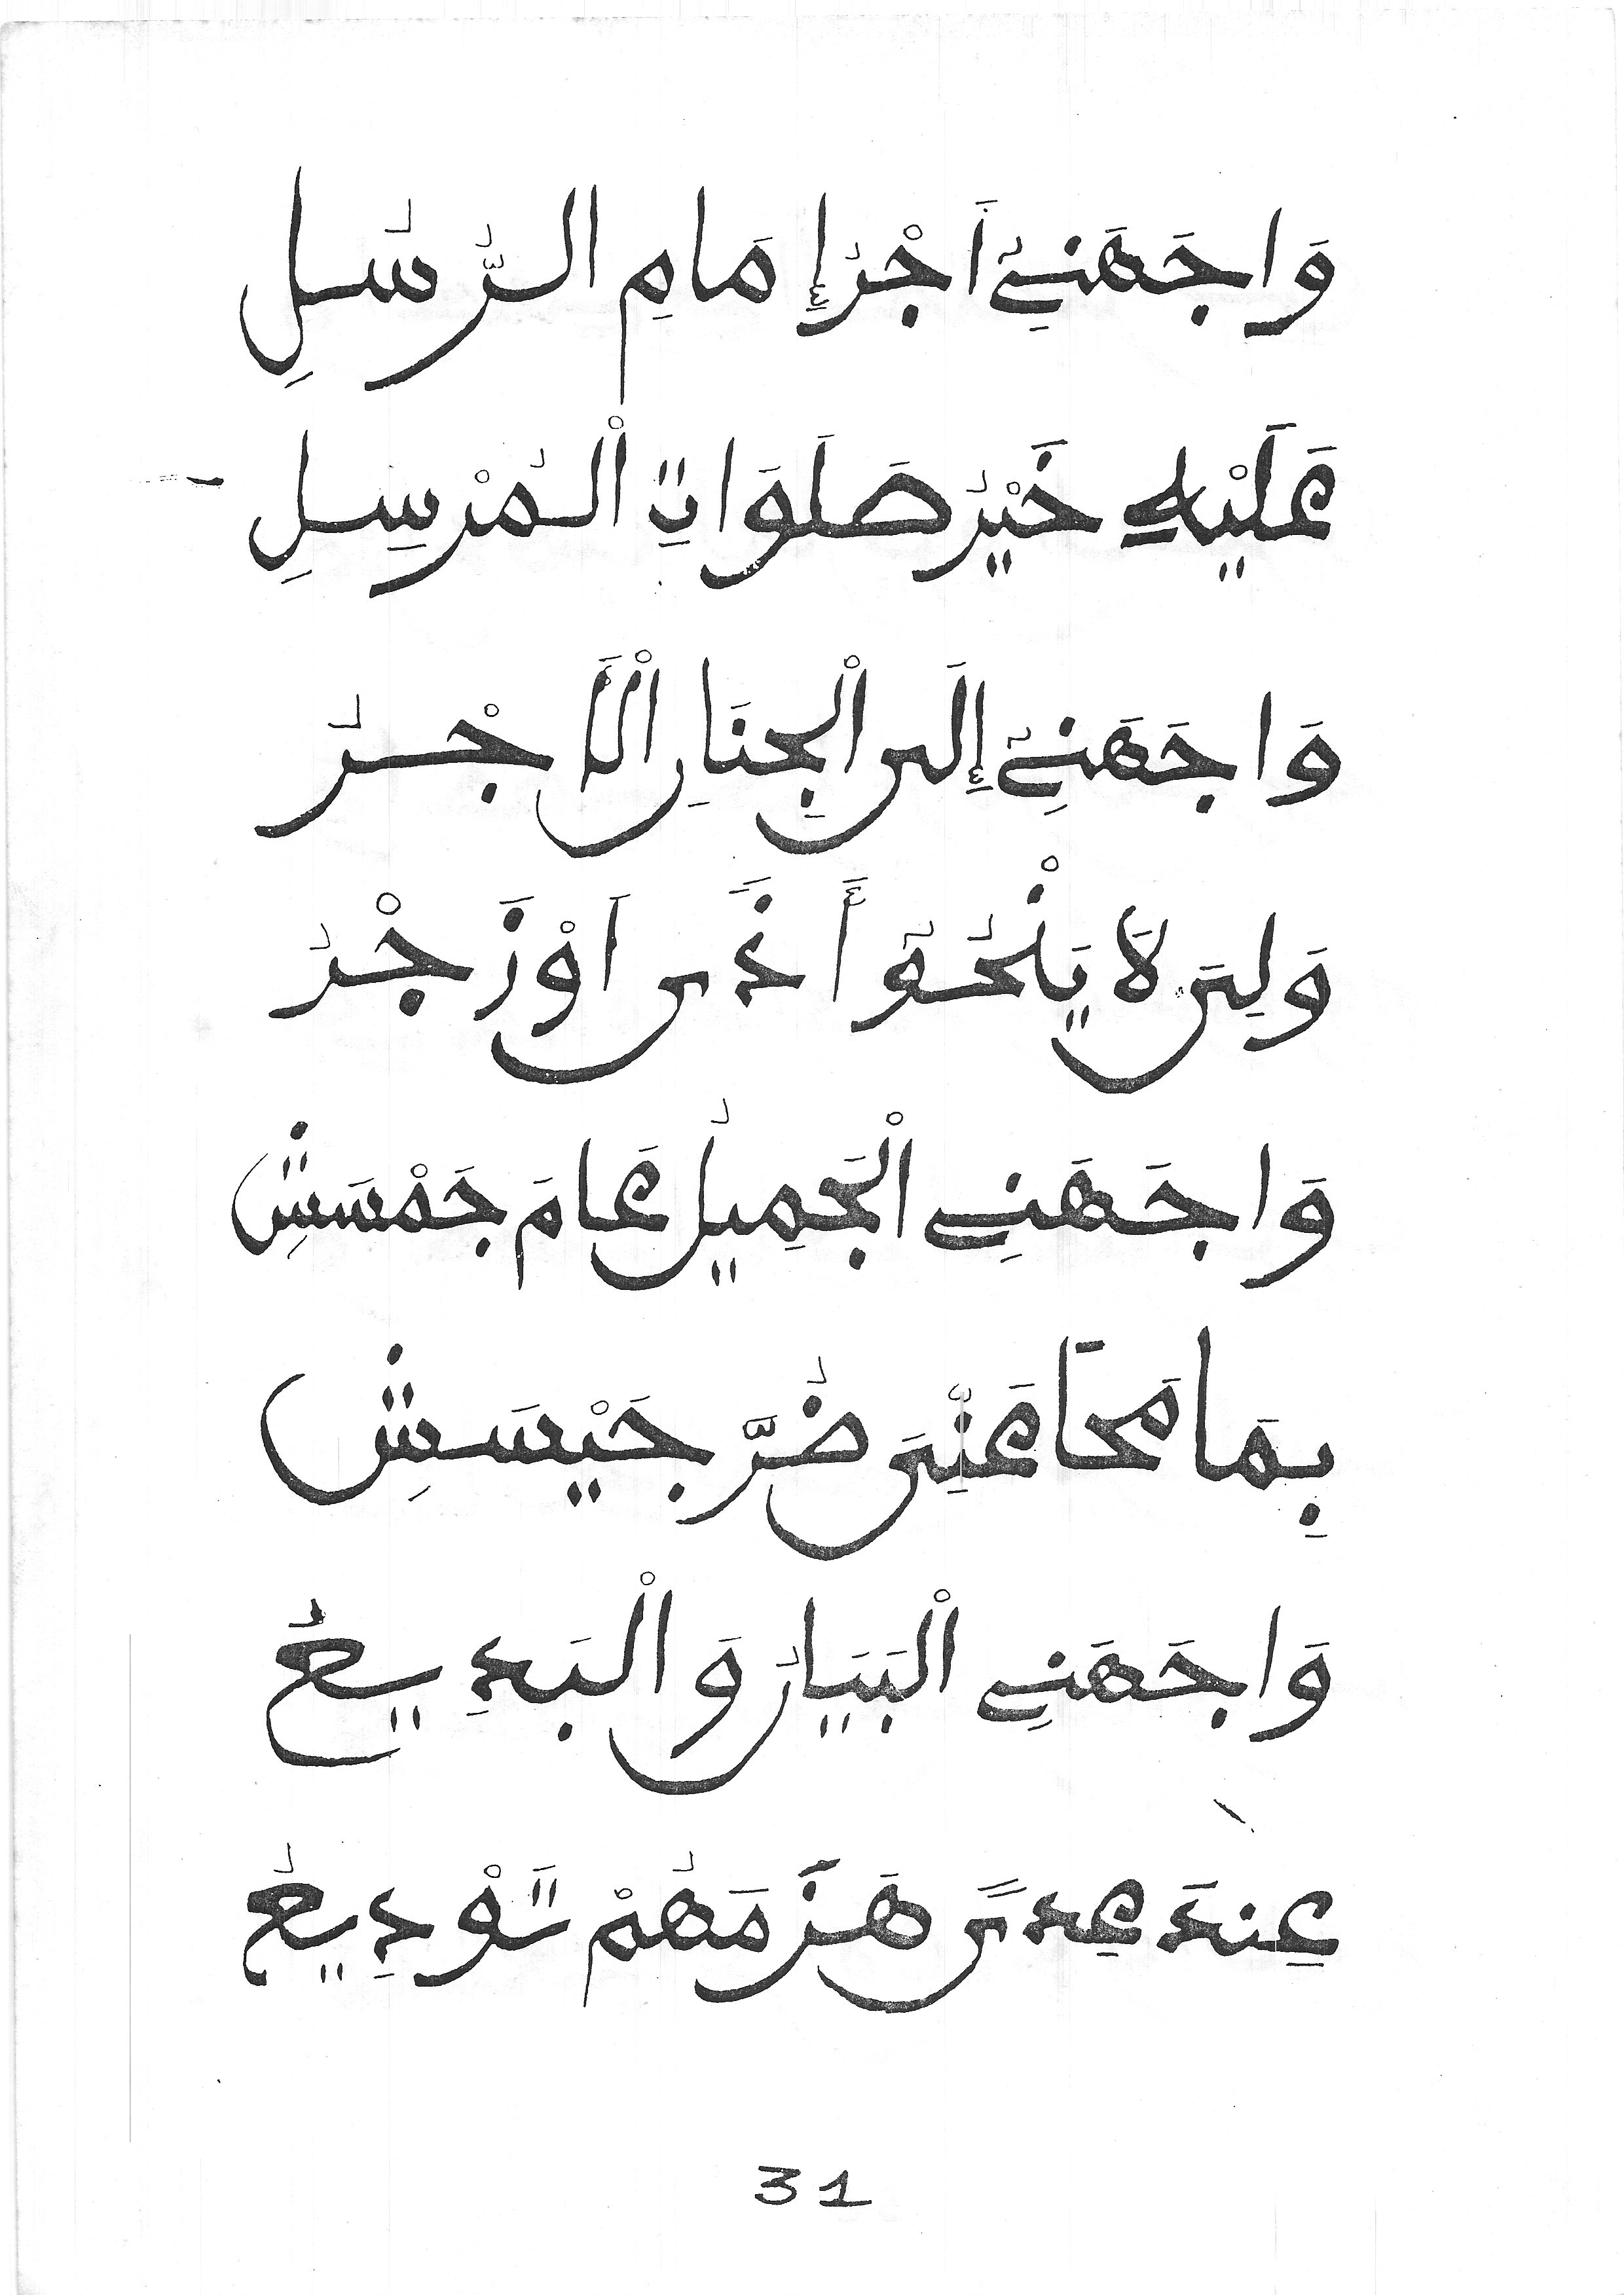 وَاجَهَنِي أَجْرُ إِمَامِ الرُّسُلِ
عَلَيْهِ خَيْرُ صَلَوَاتِ الْمُرْسِلِ
وَاجَهَنِي إِلَى الْجِنَانِ الْأَجْرُ
وَلِيَ لَا يَنْحُو أَذًى أَوْ زَجْرُ
وَاجَهَنِي الْجَمِيلُ عَامَ جَمْسَشِ
بِمَا مَحَا عَنِّيَ ضُرَّ جَيْسَشِ
وَاجَهَنِي الْبَيَانُ وَالْبَدِيعُ
عِندَ عِدًى هَزَمَهُمْ تَوْدِيعُ
31